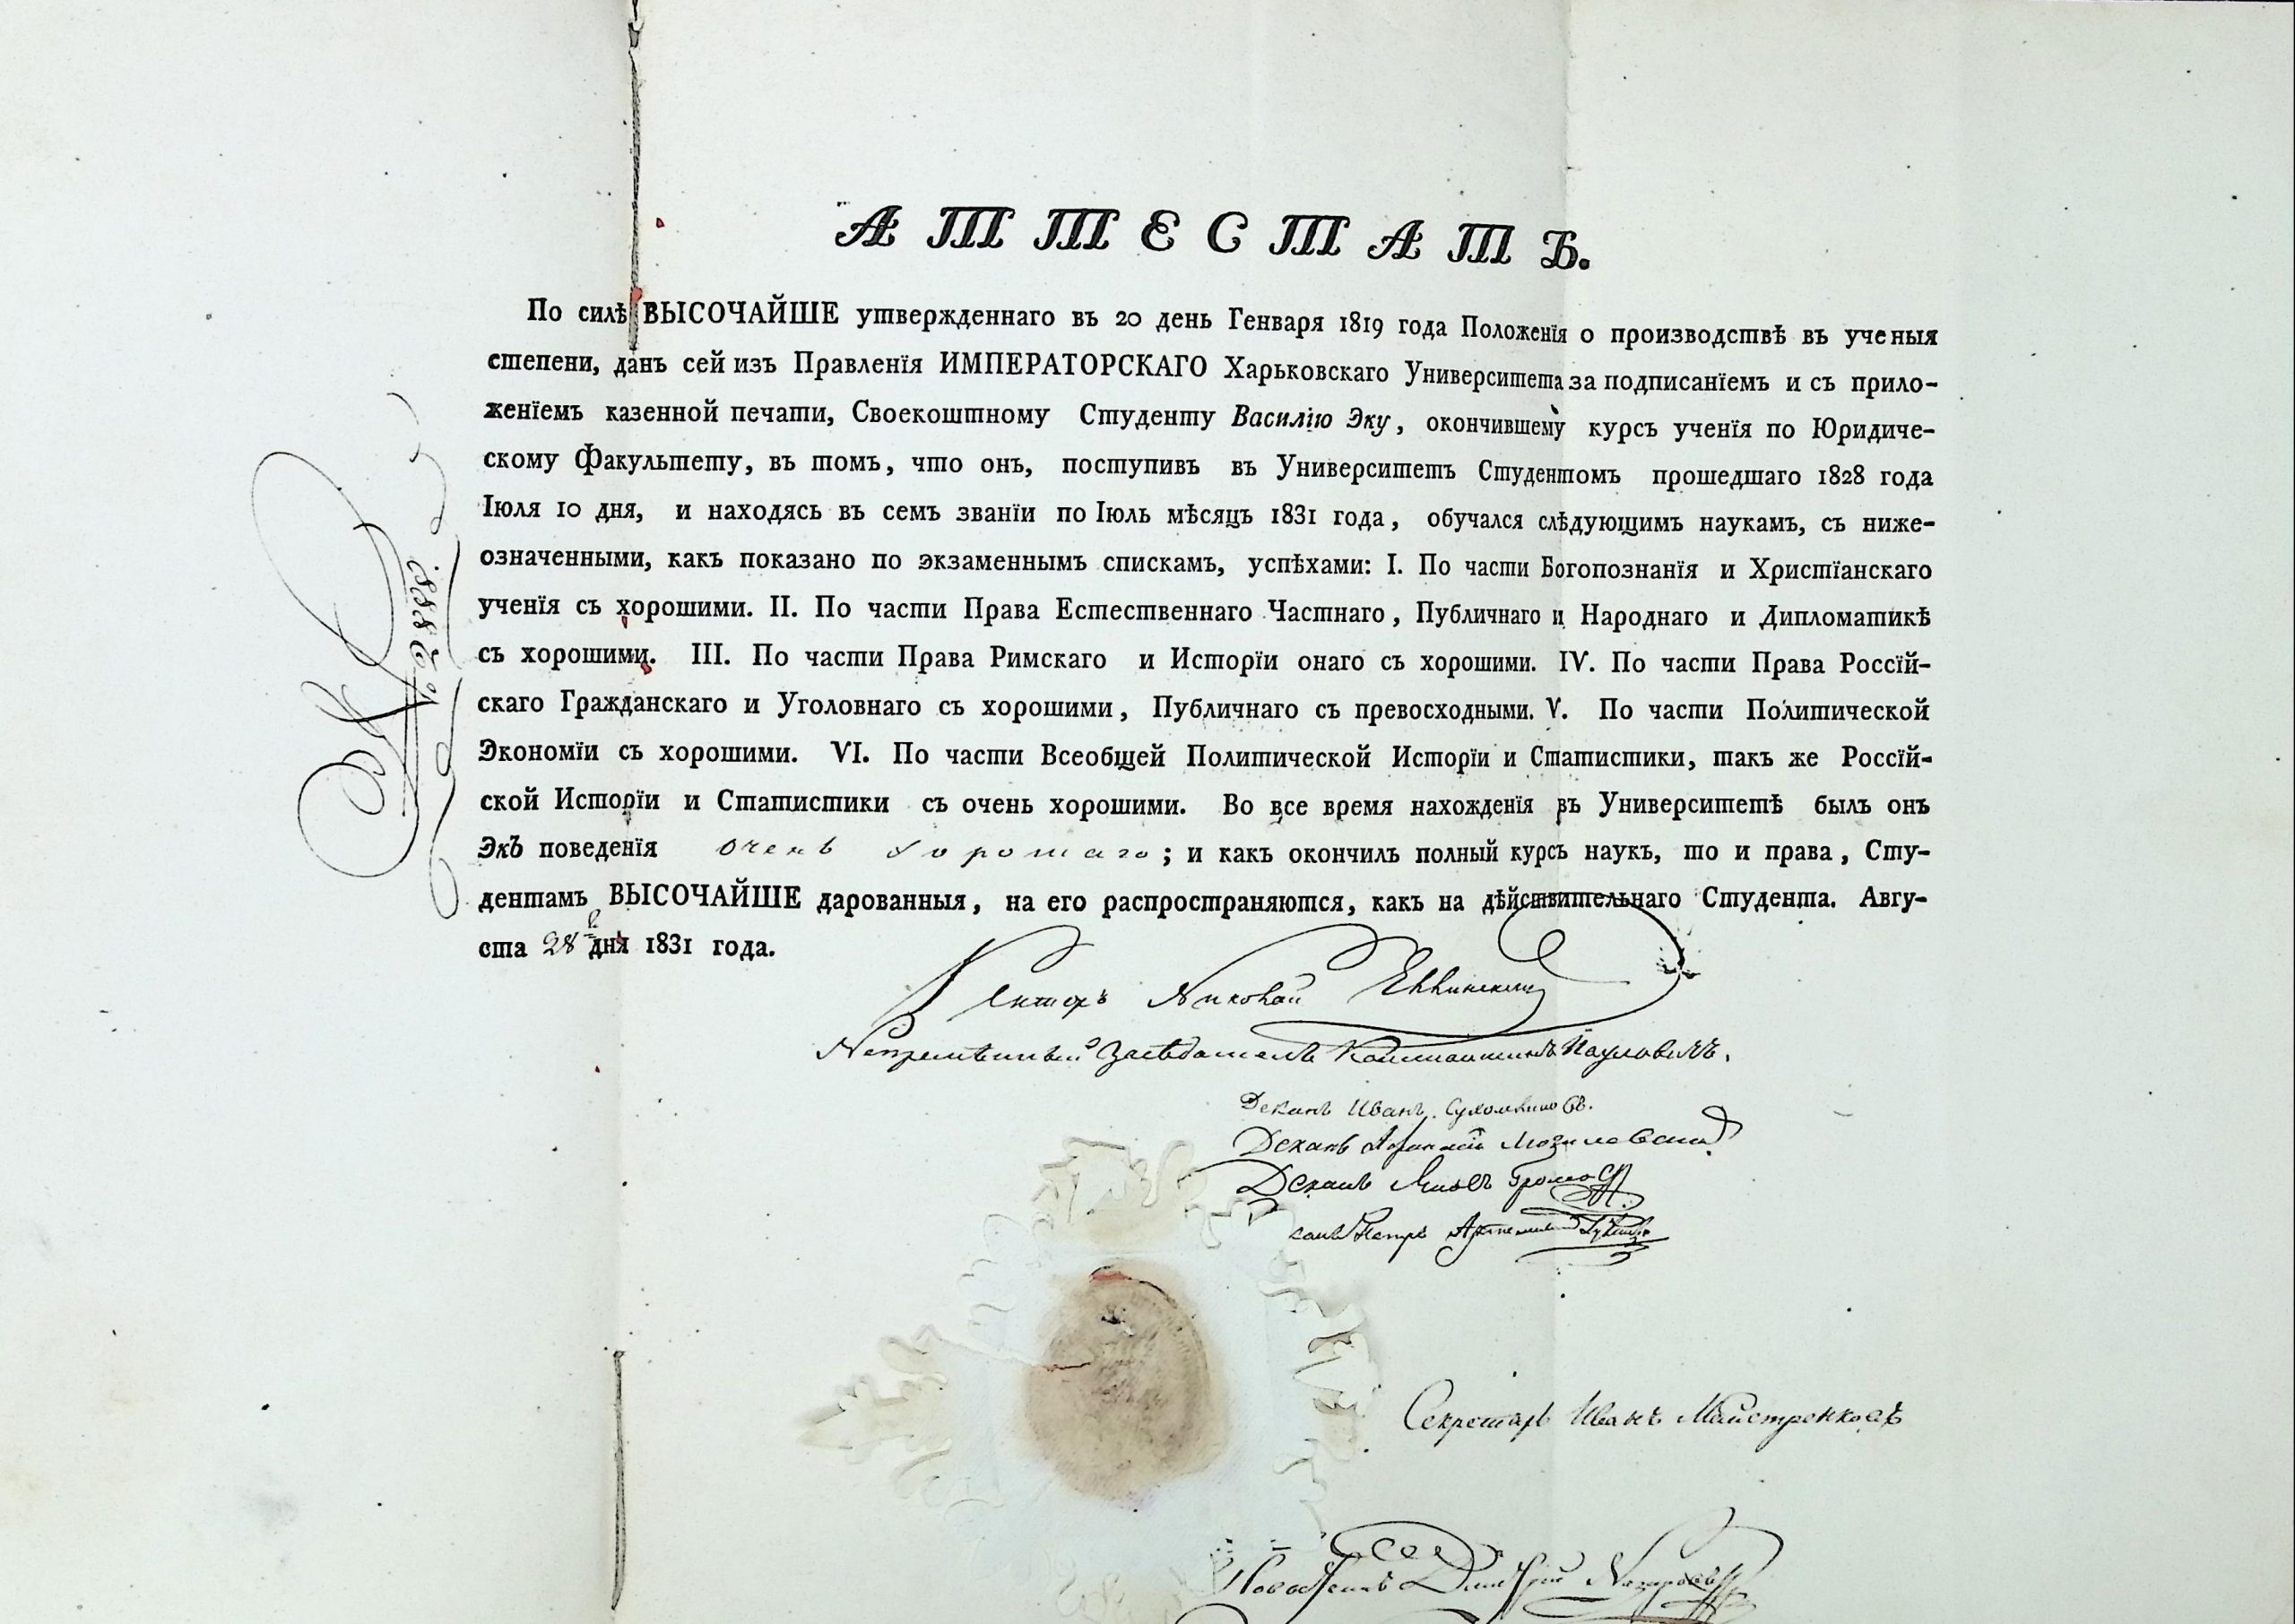 АТТЕСТАТЪ.
По силѣ ВЫСОЧАЙШЕ утвержденнаго въ 20 день Генваря 1819 года Положенїя о производствѣ въ ученыя
степени, данъ сей изъ Правленїя ИМПЕРАТОРСКАГО Харьковскаго Университета за подписанїемъ и съ прило-
женїемъ казенной печати, Своекоштному Студенту Василїю Эку, окончившему курсъ ученїя по Юридиче-
скому Факультету, въ томъ, что онъ, поступивъ въ Университетъ Студентомъ прошедшаго 1828 года
Іюля 10 дня, и находясь въ семъ званїи по Іюль мѣсяцъ 1831 года, обучался слѣдующимъ наукамъ, съ ниже-
означенными, какъ показано по экзаменнымъ спискамъ, успѣхами: I. По части Богопознанїя и Христїанскаго
ученїя съ хорошими. II. По части Права Естественнаго Частнаго, Публичнаго и Народнаго и Дипломатикѣ
съ хорошими. III. По части Права Римскаго и Исторїи онаго съ хорошими. IV. По части Права Россїй-
скаго Гражданскаго и Уголовнаго съ хорошими, Публичнаго съ превосходными. V. По части Политической
Экономїи съ хорошими. VI. По части Всеобщей Политической Исторїи и Статистики, такъ же Россїй-
ской Исторїи и Статистики съ очень хорошими. Во все время нахожденїя въ Университетѣ былъ онъ
Экъ поведенїя очень хорошаго; и какъ окончилъ полный курсъ наукъ, то и права, Сту-
дентамъ ВЫСОЧАЙШЕ дарованныя, на его распространяются, какъ на дѣйствительнаго Студента. Авгу-
ста 28 дня 1831 года.
Ректоръ Николай Еллинскій
Непремѣнный Засѣдатель Константинъ Пауловичъ.
Деканъ Иванъ Сухомлиновъ.
Деканъ Афанасій Могилевскій
Деканъ Яковъ Громовъ
канъ Петръ Артемовскій Гулакъ
Секретарь Иванъ Майстренковъ